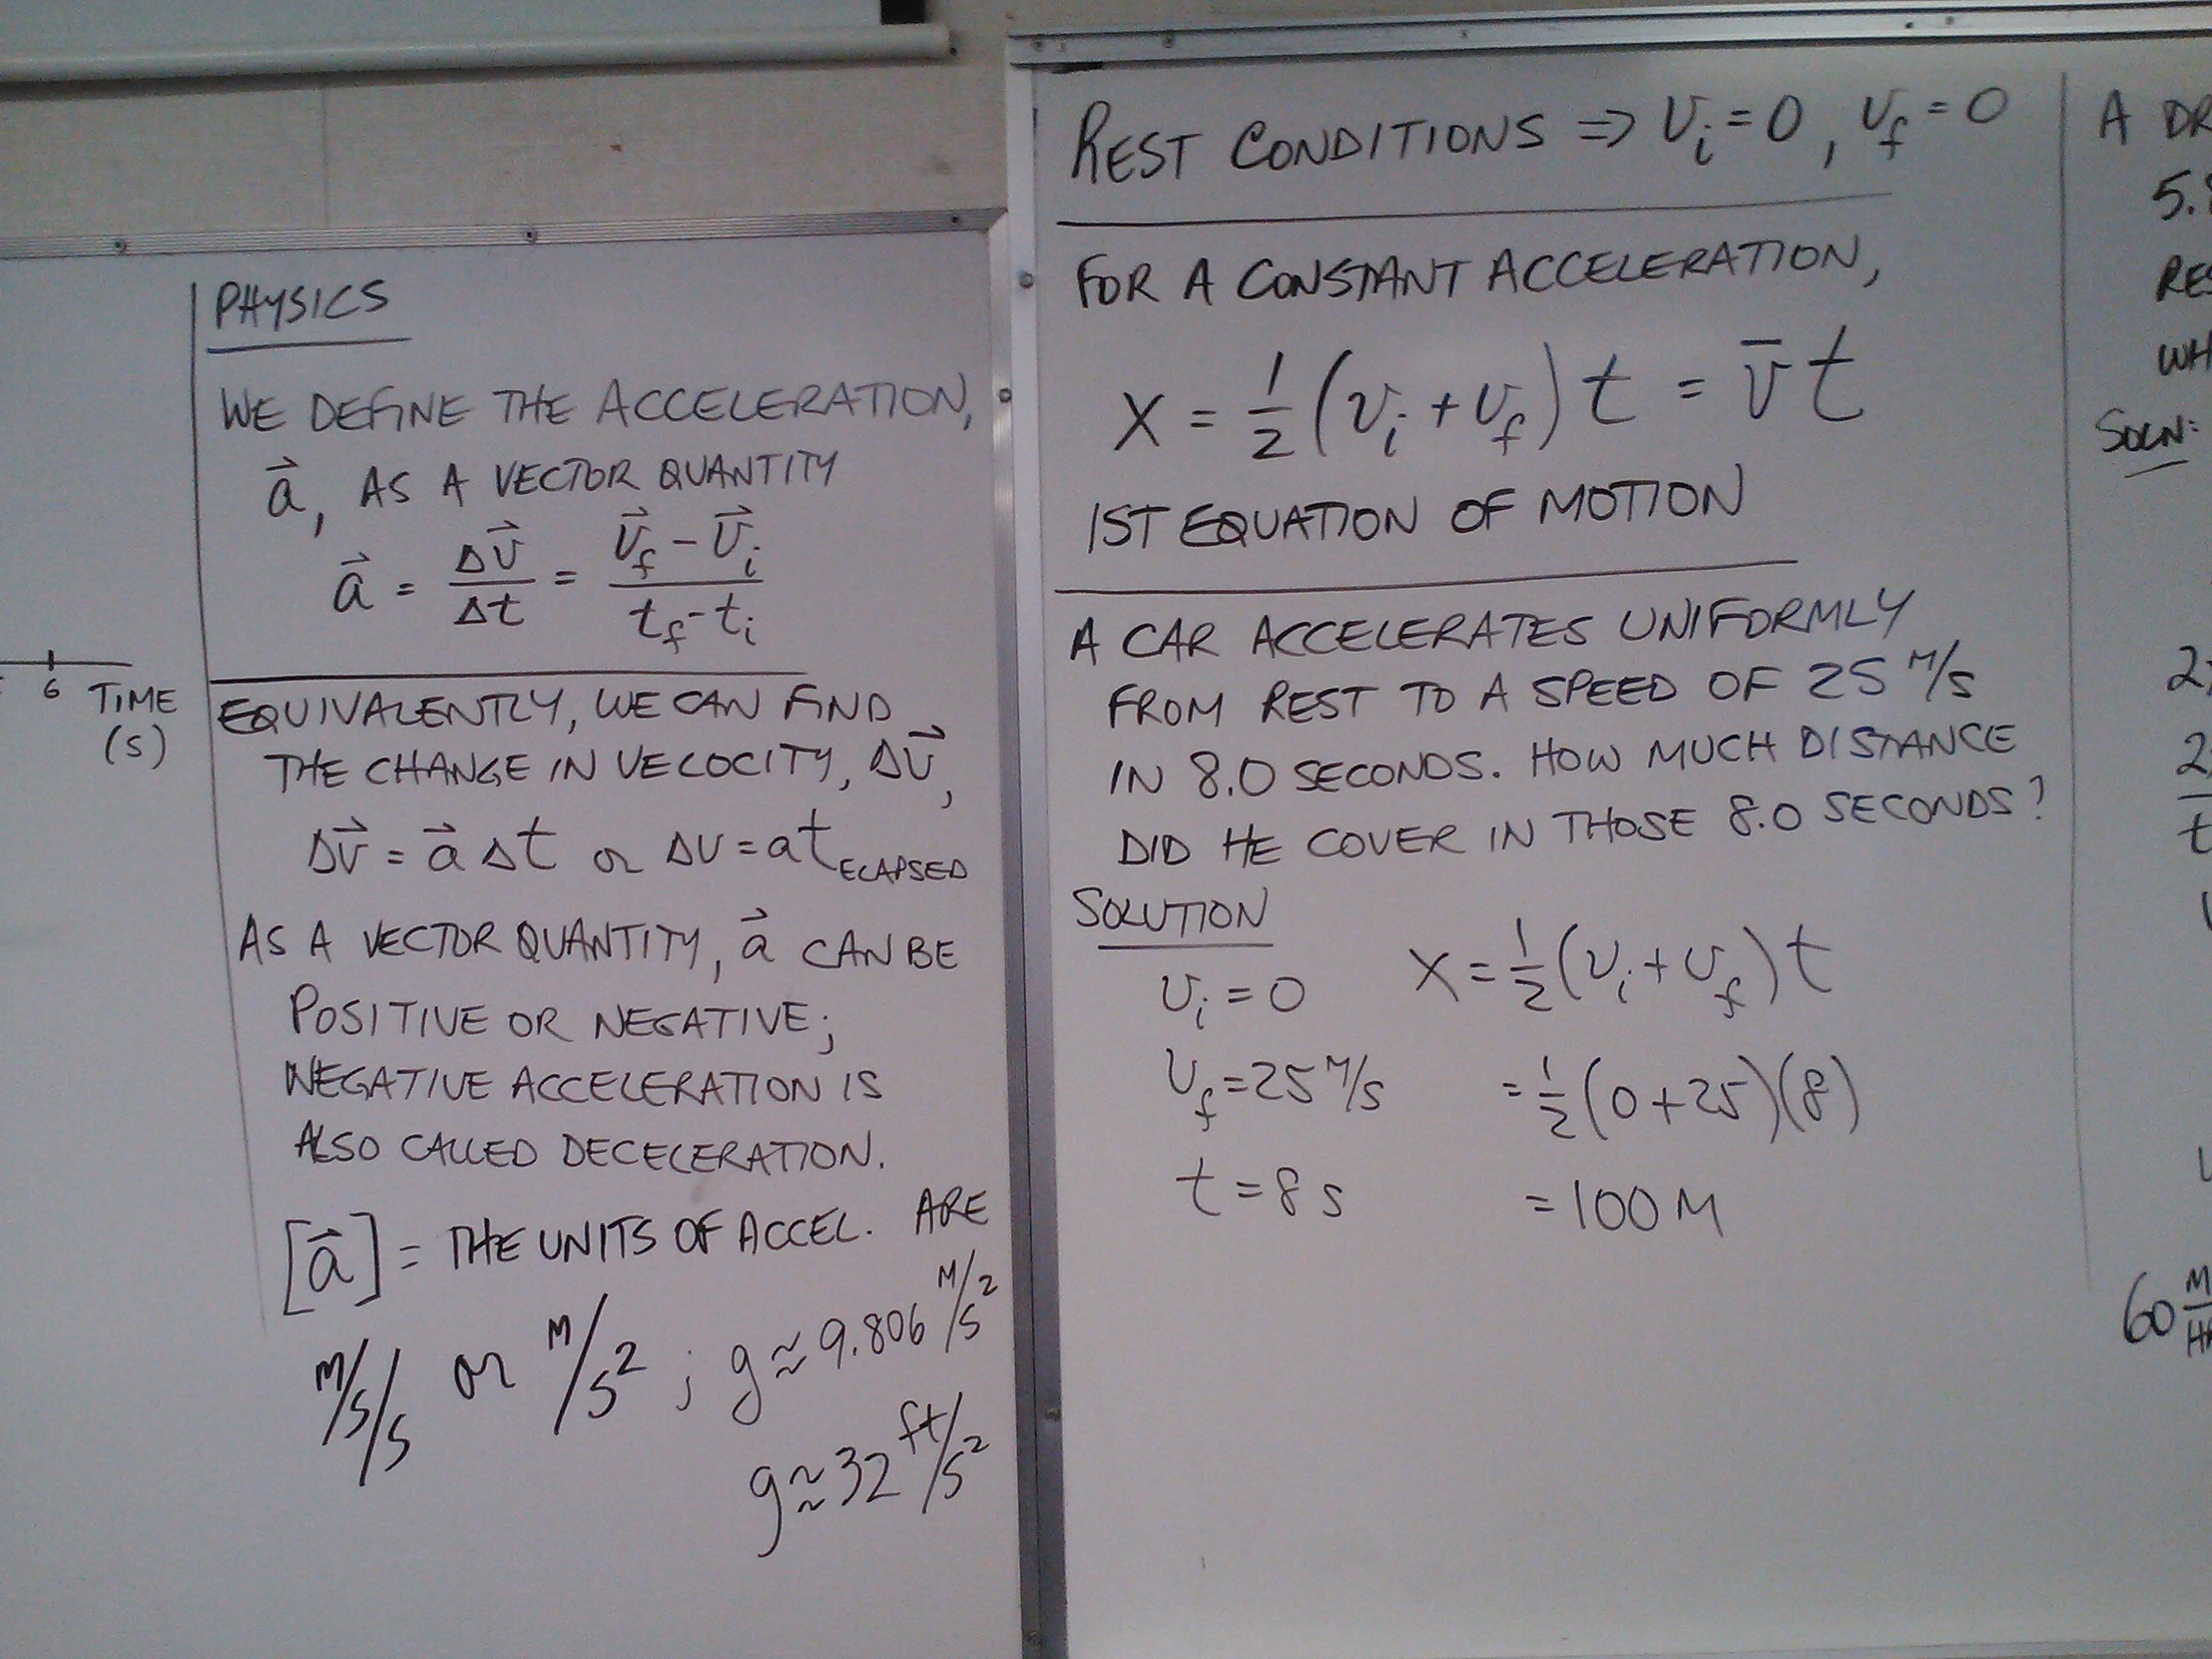 6 TIME
(S)
PHYSICS
WE DEFINE THE ACCELERATION,
a⃗, AS A VECTOR QUANTITY
a⃗ = Δv⃗/Δt = (v⃗_f - v⃗_i)/(t_f - t_i)
EQUIVALENTLY, WE CAN FIND
THE CHANGE IN VELOCITY, Δv⃗,
Δv⃗ = a⃗ Δt or Δv = at_ELAPSED
AS A VECTOR QUANTITY, a⃗ CAN BE
POSITIVE OR NEGATIVE;
NEGATIVE ACCELERATION IS
ALSO CALLED DECELERATION.
[a⃗] = THE UNITS OF ACCEL. ARE
m/s/s or m/s² ; g ≈ 9.806 m/s²
g ≈ 32 ft/s²
REST CONDITIONS ⇒ v_i = 0, v_f = 0
FOR A CONSTANT ACCELERATION,
x = 1/2 (v_i + v_f) t = v̄ t
1ST EQUATION OF MOTION
A CAR ACCELERATES UNIFORMLY
FROM REST TO A SPEED OF 25 M/S
IN 8.0 SECONDS. HOW MUCH DISTANCE
DID HE COVER IN THOSE 8.0 SECONDS?
SOLUTION
v_i = 0 x = 1/2 (v_i + v_f) t
v_f = 25 M/S = 1/2 (0 + 25)(8)
t = 8 s = 100 M
A DR
5.
RES
WH
SOLN:
2
2
t
60 M